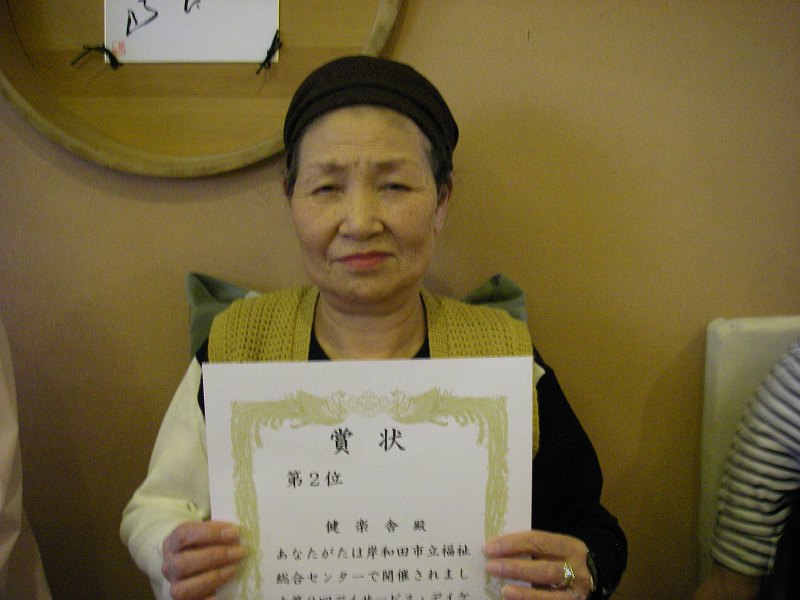 賞状
第2位
健楽舎殿
あなたがたは岸和田市立福祉
総合センターで開催されまし